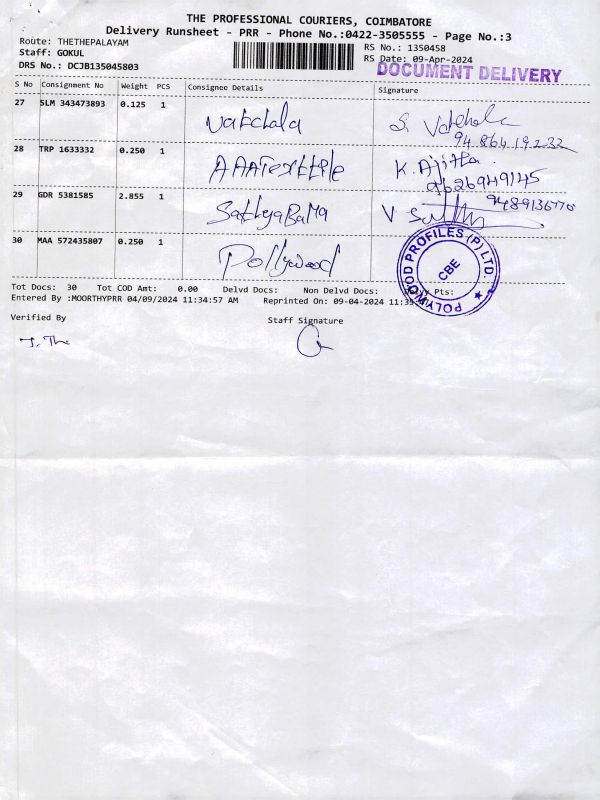 THE PROFESSIONAL COURIERS, COIMBATORE
Delivery Runsheet - PRR - Phone No.:0422-3505555 - Page No.:3
Route: THETHEPALAYAM
RS No.: 1350458
Staff: GOKUL
RS Date: 09-Apr-2024
DRS No.: DCJB135045803
DOCUMENT DELIVERY
S No Consignment No Weight PCS Consignee Details Signature
27 SLM 343473893 0.125 1
94 864 19232
28 TRP 1633332 0.250 1 AAATextile K. Ajitha
9626949145
29 GDR 5381585 2.855 1 SathyaBaMa V
30 MAA 572435807 0.250 1 Pollywood
POLYWOOD PROFILES (P) LTD. CBE
Tot Docs: 30 Tot COD Amt: 0.00 Delvd Docs: Non Delvd Docs: Pts:
Entered By :MOORTHYPRR 04/09/2024 11:34:57 AM Reprinted On: 09-04-2024
Verified By Staff Signature